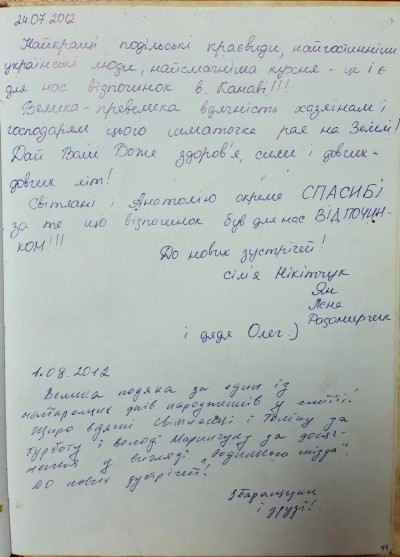 24.07.2012
Найкращі подільські краєвиди, найгостинніші
українські люди, найсмачніша кухня - це і є
для нас відпочинок в. Канаві!!!
Велика-превелика вдячність хазяїнам і
господарям цього шматочка рая на Землі!
Дай Вам Боже здоров'я, сили і довгих-
довгих літ!
Світлані і Анатолію окреме СПАСИБІ
за те що відпочинок був для нас ВІДПОЧИН-
КОМ!!!
До нових зустрічей!
сім'я Нікітчук
Ян
Лєна
і дядя Олег:)
1.08.2012
Велика подяка за один із
найкращих днів народженнів у житті!
Щиро вдячні Світланці і Толіку за
турботу і Володі Маринчуку за
у вигляді "Родинного гнізда".
До нових зустрічей!
і друзі!